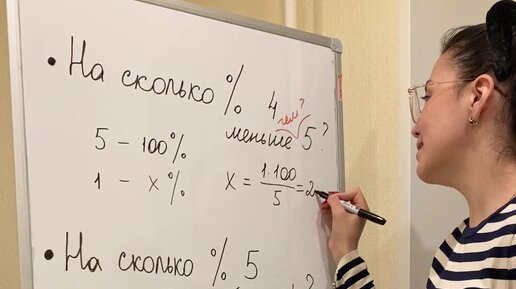 • На сколько % 4
чем?
меньше 5?
5 – 100%
1 – x%
x = 1·100 / 5 = 2
• На сколько % 5